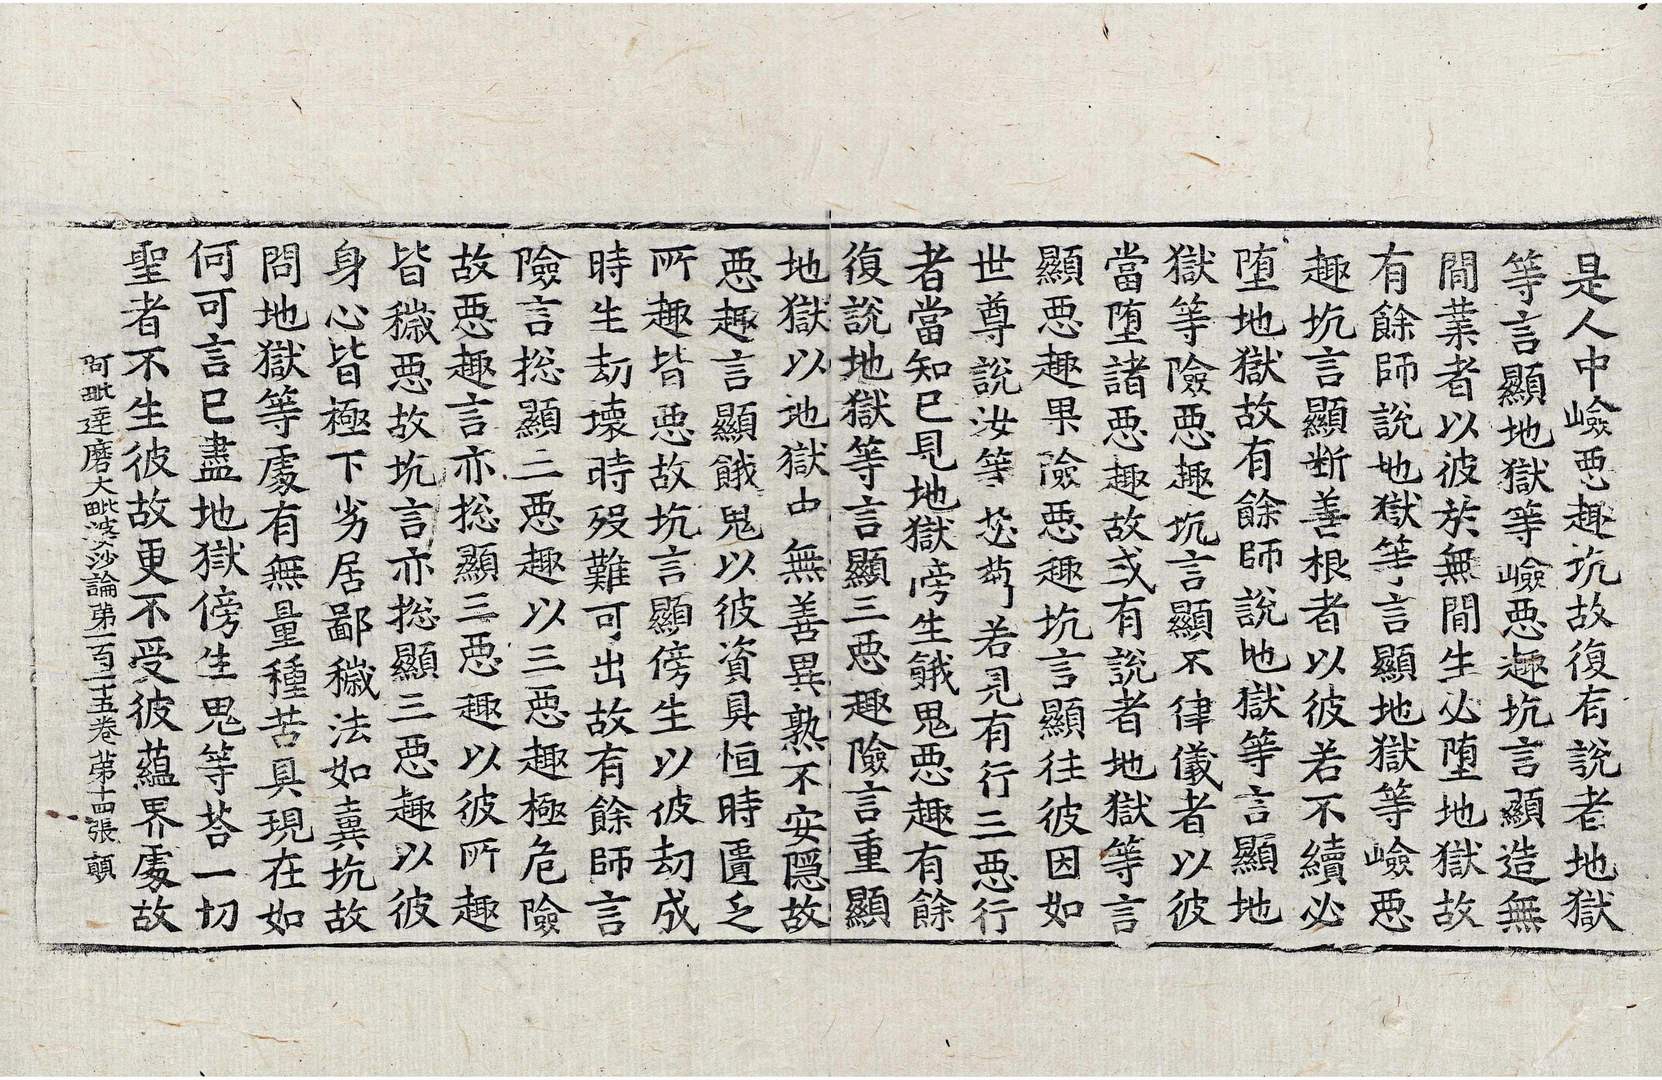 是人中嶮惡趣坑故復有說者地獄
等言顯地獄等嶮惡趣坑言顯造無
間業者以彼於無間生必墮地獄故
有餘師說地獄等言顯地獄等嶮惡
趣坑言顯斷善根者以彼若不續必
墮地獄故有餘師說地獄等言顯地
獄等險惡趣坑言顯不律儀者以彼
當墮諸惡趣故或有說者地獄等言
顯惡趣果險惡趣坑言顯往彼因如
世尊說汝等苾芻若見有行三惡行
者當知已見地獄傍生餓鬼惡趣有餘
復說地獄等言顯三惡趣險言重顯
地獄以地獄中無善異熟不安隱故
惡趣言顯餓鬼以彼資具恒時匱乏
所趣皆惡故坑言顯傍生以彼劫成
時生劫壞時歿難可出故有餘師言
險言揔顯三惡趣以三惡趣極危險
故惡趣言亦揔顯三惡趣以彼所趣
皆穢惡故坑言亦揔顯三惡趣以彼
身心皆極下劣居鄙穢法如糞坑故
問地獄等處有無量種苦具現在如
何可言已盡地獄傍生鬼等荅一切
聖者不生彼故更不受彼蘊界處故
阿毗達磨大毗婆沙論第一百二十五卷 第十四張 顛